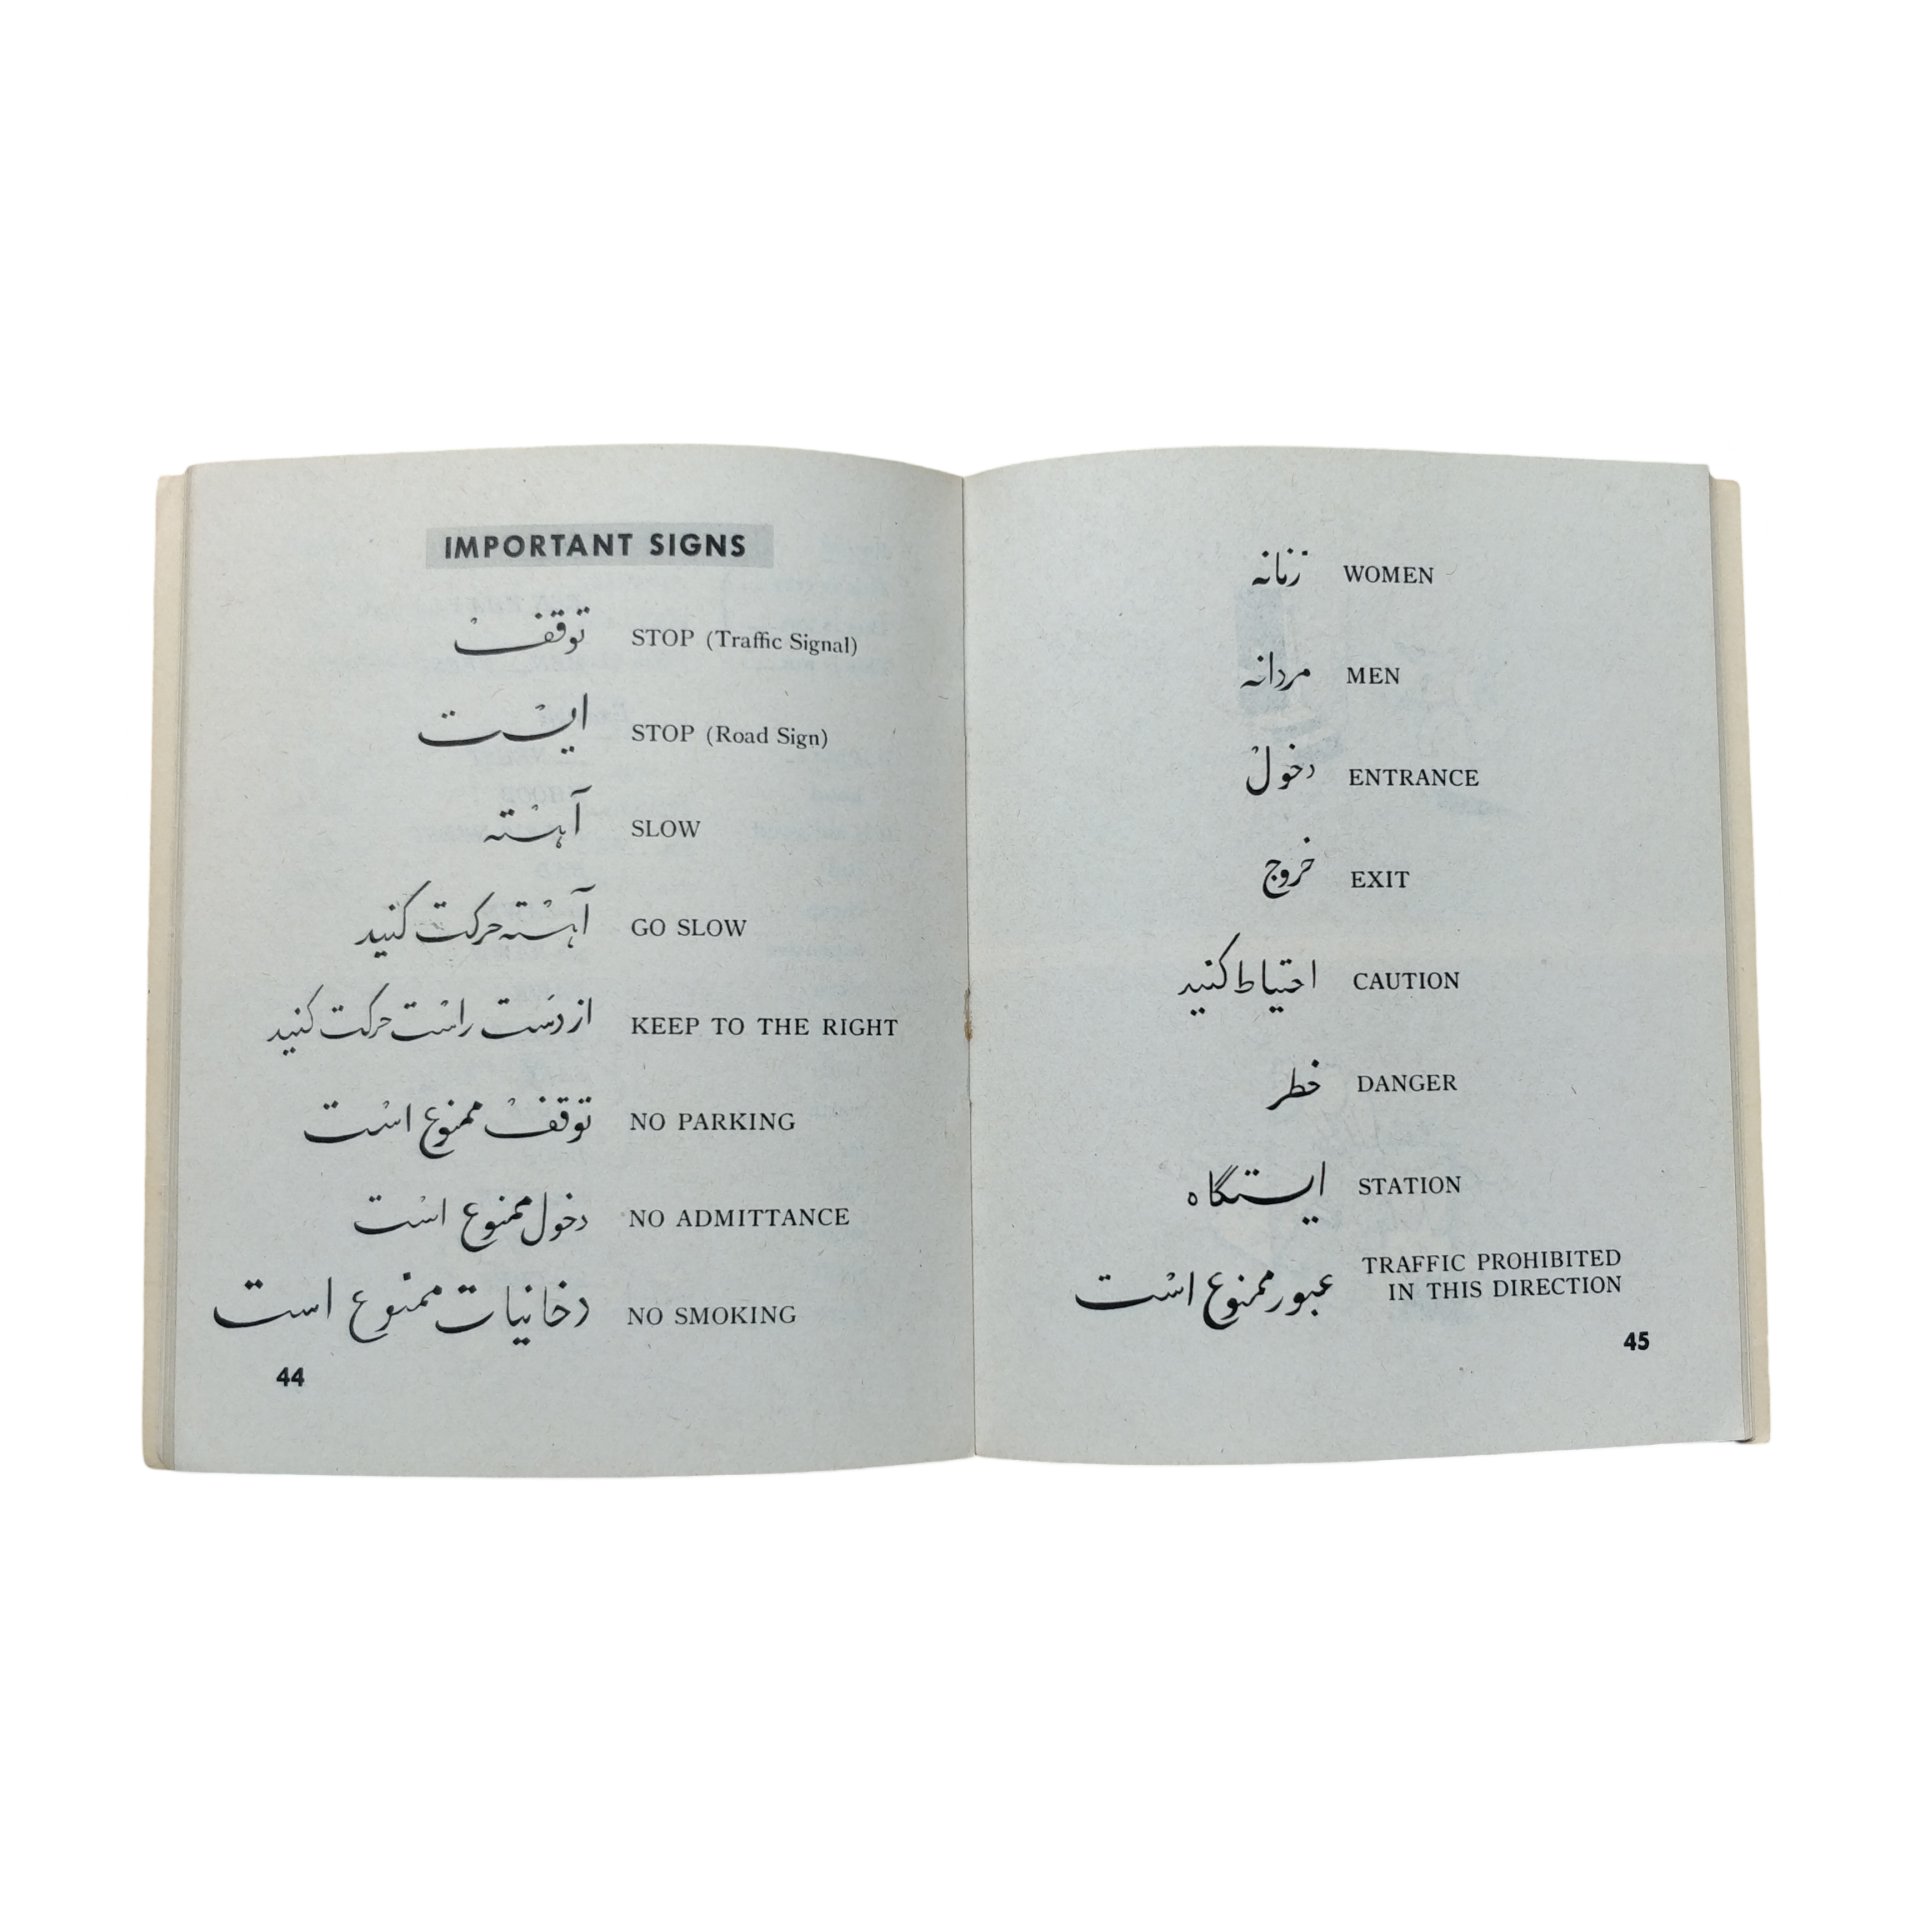 IMPORTANT SIGNS
توقف STOP (Traffic Signal)
ایست STOP (Road Sign)
آهسته SLOW
آهسته حرکت کنید GO SLOW
از دست راست حرکت کنید KEEP TO THE RIGHT
توقف ممنوع است NO PARKING
دخول ممنوع است NO ADMITTANCE
دخانیات ممنوع است NO SMOKING
44
زنانه WOMEN
مردانه MEN
دخول ENTRANCE
خروج EXIT
احتیاط کنید CAUTION
خطر DANGER
ایستگاه STATION
عبور ممنوع است TRAFFIC PROHIBITED
IN THIS DIRECTION
45